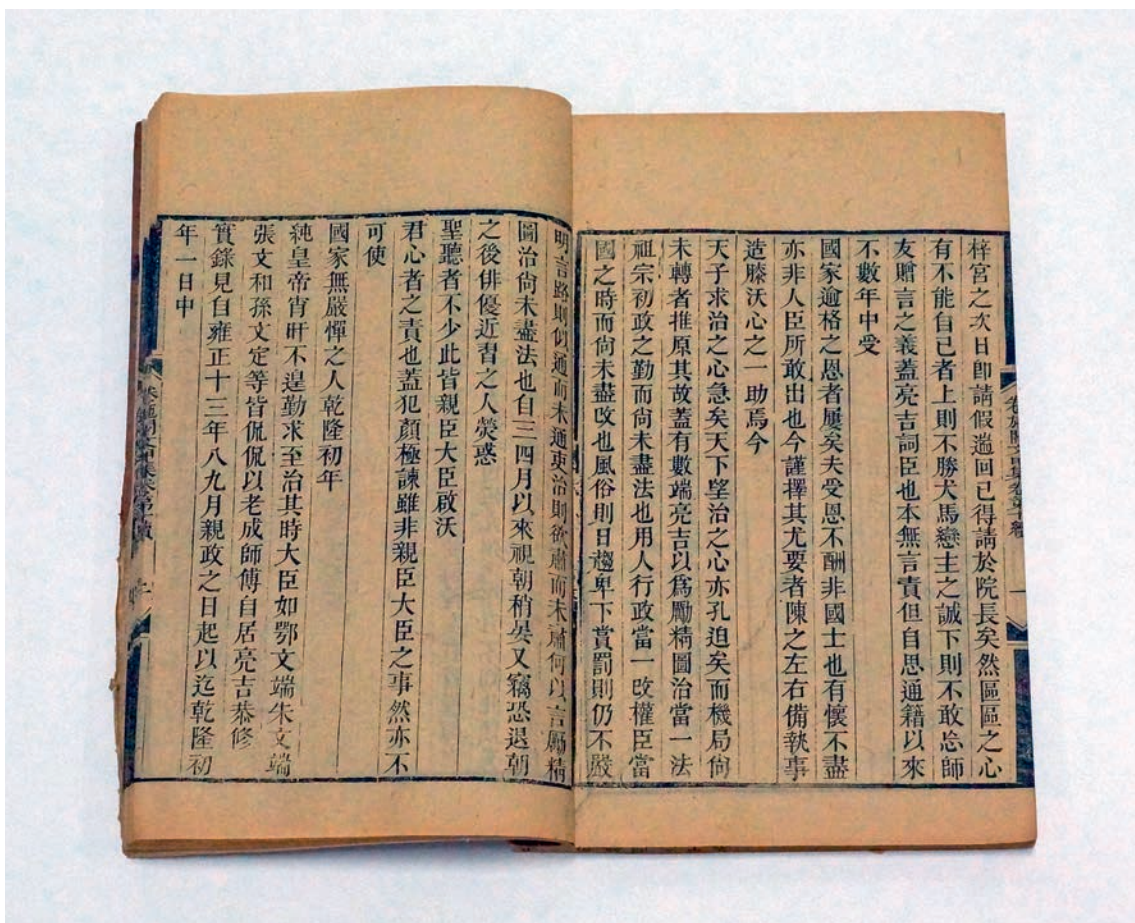 梓宮之次日卽請假遄回已得請於院長矣然區區之心
有不能自已者上則不勝犬馬戀主之誠下則不敢忘師
友贈言之義蓋亮吉詞臣也本無言責但自思通籍以來
不數年中受
國家逾格之恩者屢矣夫受恩不酬非國士也有懷不盡
亦非人臣所敢出也今謹擇其尤要者陳之左右備執事
造膝沃心之一助焉今
天子求治之心急矣天下望治之心亦孔迫矣而機局尙
未轉者推原其故蓋有數端亮吉以爲勵精圖治當一法
祖宗初政之勤而尙未盡法也用人行政當一改權臣當
國之時而尙未盡改也風俗則日趨卑下賞罰則仍不嚴
明言路則似通而未通吏治則欲肅而未肅何以言勵精
圖治尙未盡法也自三四月以來視朝稍晏又竊恐退朝
之後俳優近習之人熒惑
聖聽者不少此皆親臣大臣啟沃
君心者之責也蓋犯顏極諫雖非親臣大臣之事然亦不
可使
國家無嚴憚之人乾隆初年
純皇帝宵旰不遑勤求至治其時大臣如鄂文端朱文端
張文和孫文定等皆侃侃以老成師傅自居亮吉恭修
實錄見自雍正十三年八九月親政之日起以迄乾隆初
年一日中